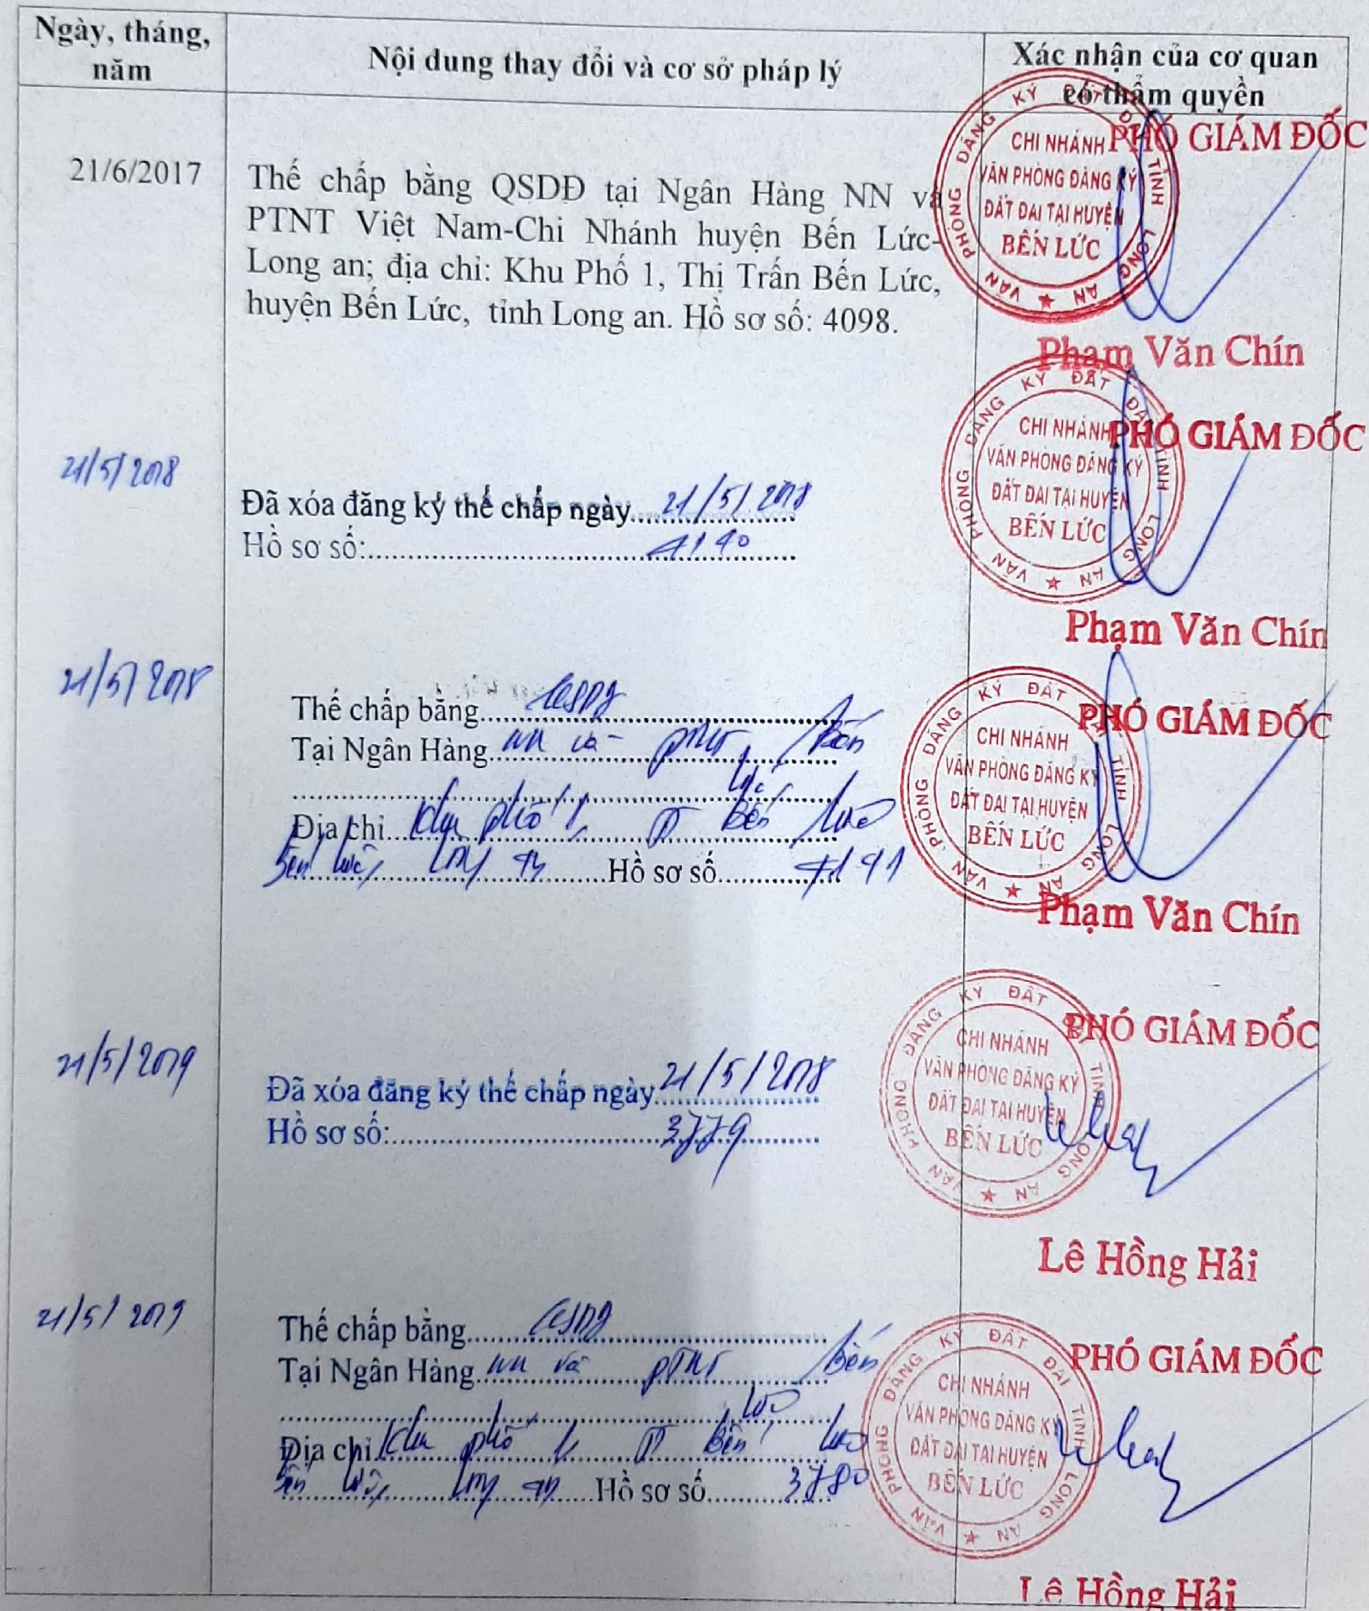 Ngày, tháng,
năm
Nội dung thay đổi và cơ sở pháp lý
Xác nhận của cơ quan
có thẩm quyền
21/6/2017
Thế chấp bằng QSDĐ tại Ngân Hàng NN và
PTNT Việt Nam-Chi Nhánh huyện Bến Lức-
Long an; địa chỉ: Khu Phố 1, Thị Trấn Bến Lức,
huyện Bến Lức, tỉnh Long an. Hồ sơ số: 4098.
PHÓ GIÁM ĐỐC
VĂN PHÒNG ĐĂNG KÝ ĐẤT ĐAI TỈNH LONG AN
CHI NHÁNH
VĂN PHÒNG ĐĂNG KÝ
ĐẤT ĐAI TẠI HUYỆN
BẾN LỨC
Phạm Văn Chín
21/5/2018
Đã xóa đăng ký thế chấp ngày 21/5/2018
Hồ sơ số: 4190
PHÓ GIÁM ĐỐC
VĂN PHÒNG ĐĂNG KÝ ĐẤT ĐAI TỈNH LONG AN
CHI NHÁNH
VĂN PHÒNG ĐĂNG KÝ
ĐẤT ĐAI TẠI HUYỆN
BẾN LỨC
Phạm Văn Chín
21/5/2018
Thế chấp bằng QSDĐ
Tại Ngân Hàng NN và PTNT Bến
Lức
Địa chỉ Khu phố 1, TT Bến Lức
Bến Lức, Long An Hồ sơ số 4191
PHÓ GIÁM ĐỐC
VĂN PHÒNG ĐĂNG KÝ ĐẤT ĐAI TỈNH LONG AN
CHI NHÁNH
VĂN PHÒNG ĐĂNG KÝ
ĐẤT ĐAI TẠI HUYỆN
BẾN LỨC
Phạm Văn Chín
21/5/2019
Đã xóa đăng ký thế chấp ngày 21/5/2018
Hồ sơ số: 3779
PHÓ GIÁM ĐỐC
VĂN PHÒNG ĐĂNG KÝ ĐẤT ĐAI TỈNH LONG AN
CHI NHÁNH
VĂN PHÒNG ĐĂNG KÝ
ĐẤT ĐAI TẠI HUYỆN
BẾN LỨC
Lê Hồng Hải
21/5/2019
Thế chấp bằng QSDĐ
Tại Ngân Hàng NN và PTNT Bến
Lức
Địa chỉ Khu phố 1, TT Bến Lức
Bến Lức, Long An Hồ sơ số 3780
PHÓ GIÁM ĐỐC
VĂN PHÒNG ĐĂNG KÝ ĐẤT ĐAI TỈNH LONG AN
CHI NHÁNH
VĂN PHÒNG ĐĂNG KÝ
ĐẤT ĐAI TẠI HUYỆN
BẾN LỨC
Lê Hồng Hải